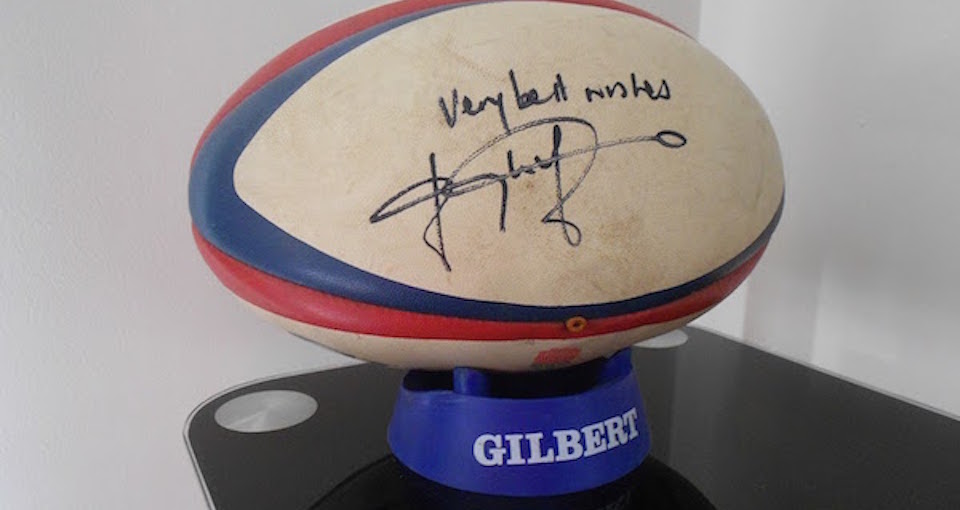 Very best wishes
GILBERT